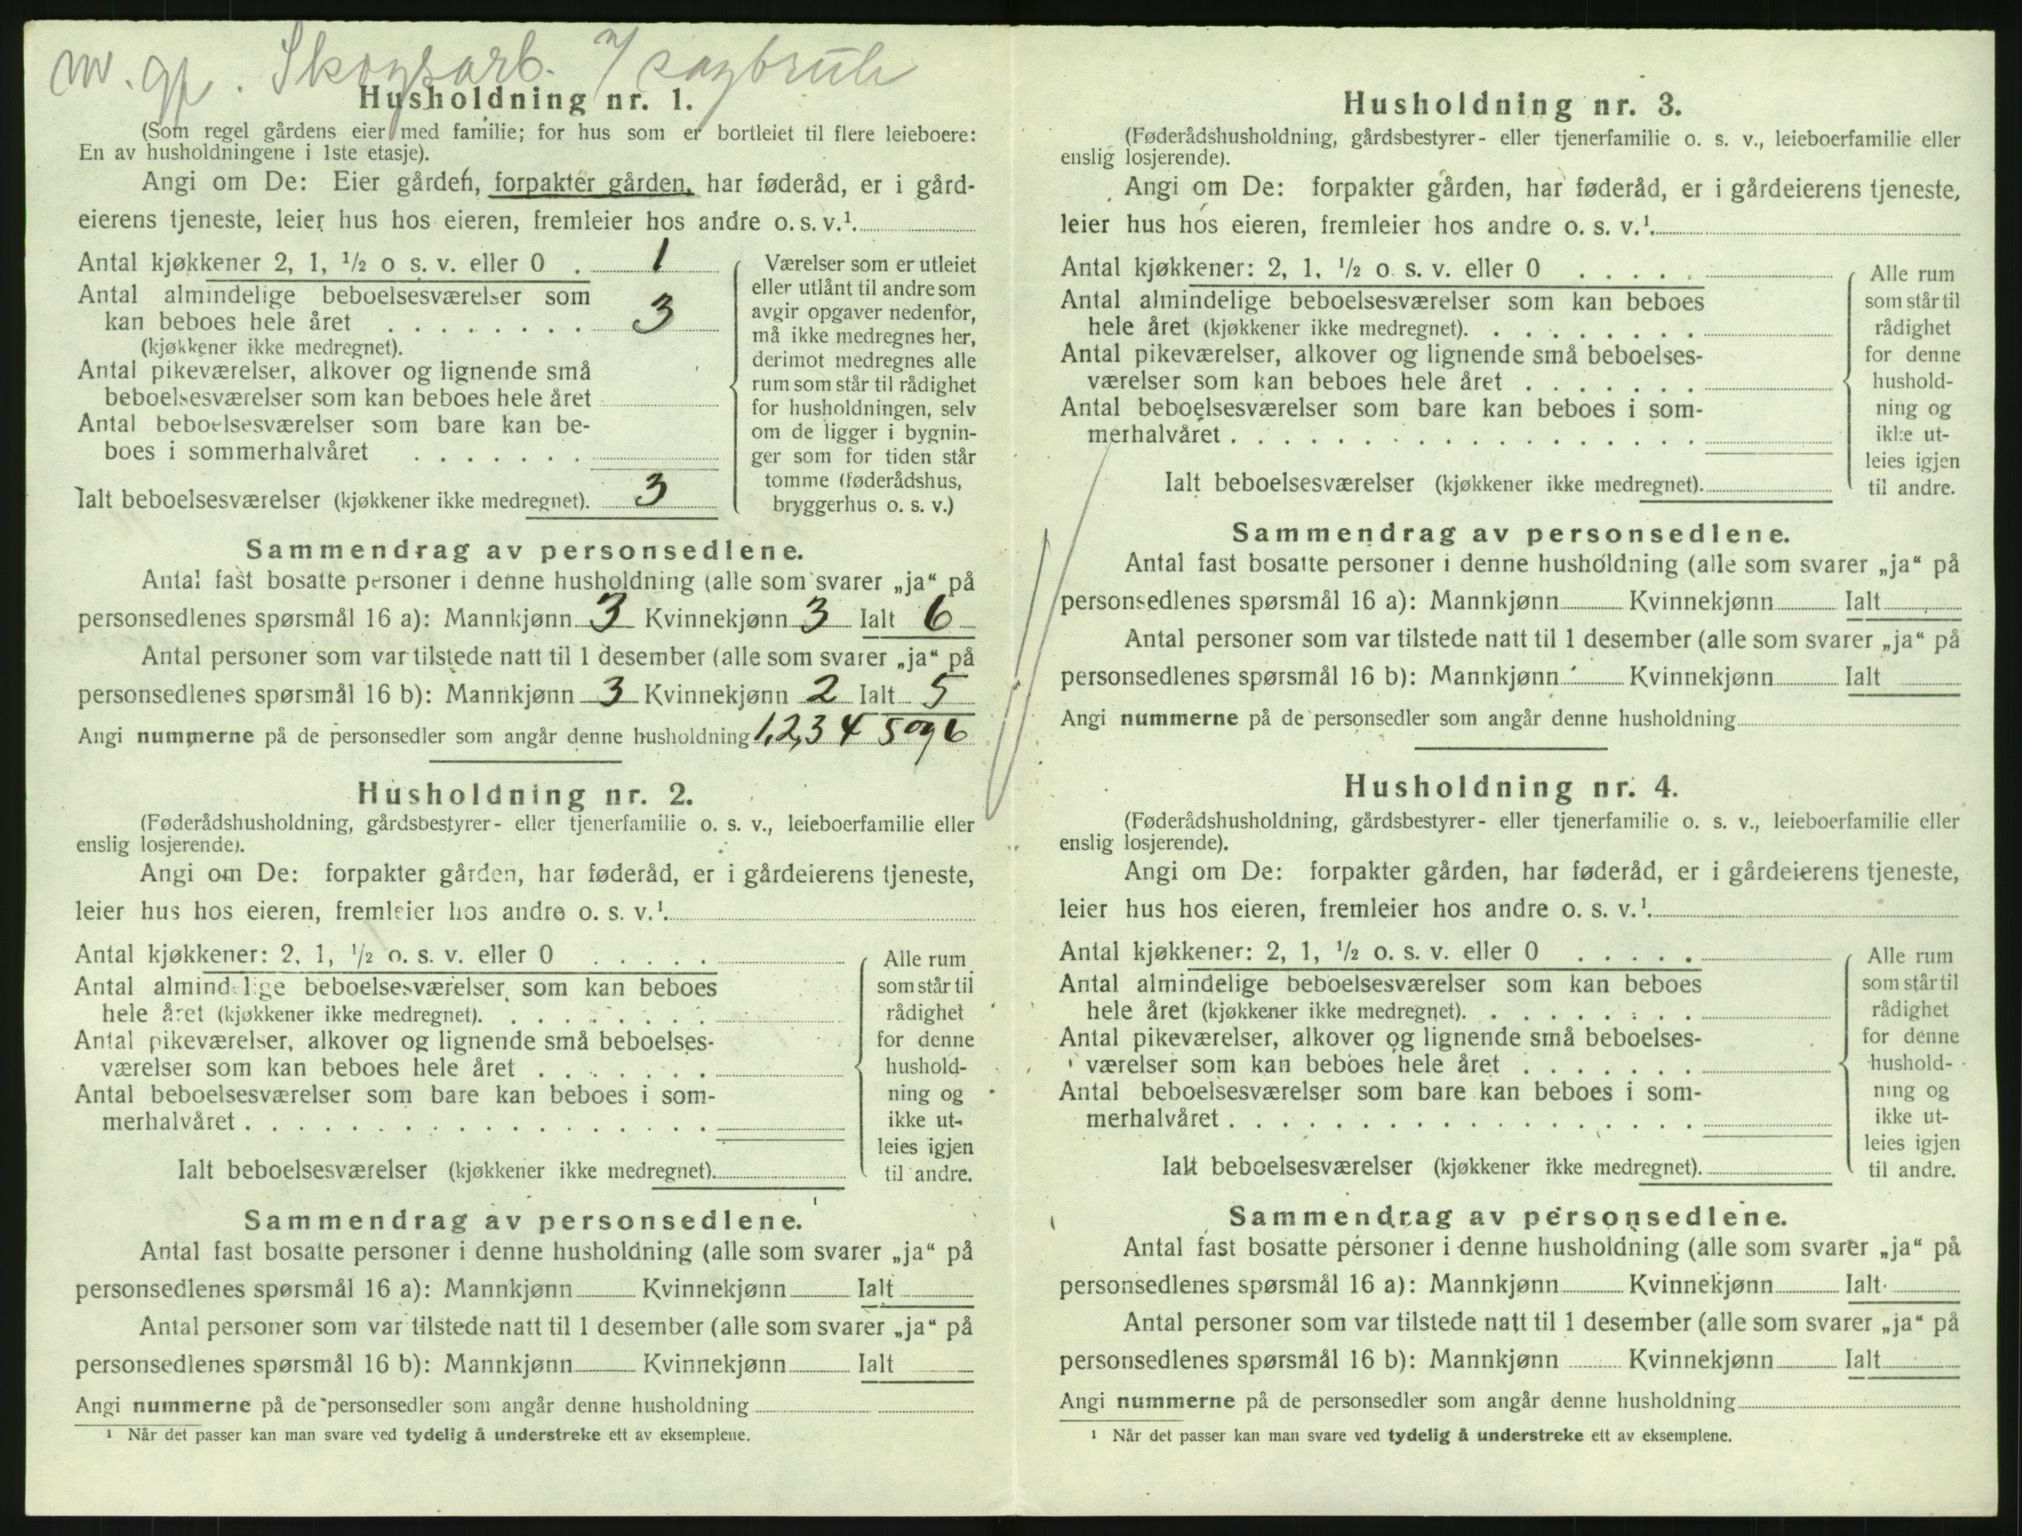 m. gp. Skogsarb. v/ sagbruk
Husholdning nr. 1.
(Som regel gårdens eier med familie; for hus som er bortleiet til flere leieboere:
En av husholdningene i 1ste etasje).
Angi om De: Eier gården, forpakter gården, har føderåd, er i gård-
eierens tjeneste, leier hus hos eieren, fremleier hos andre o. s. v.¹.
Antal kjøkkener 2, 1, ½ o s. v. eller 0 . 1
Antal almindelige beboelsesværelser som
kan beboes hele året . . . . . . . . 3
(kjøkkener ikke medregnet).
Antal pikeværelser, alkover og lignende små
beboelsesværelser som kan beboes hele året
Antal beboelsesværelser som bare kan be-
boes i sommerhalvåret . . . . . . .
Ialt beboelsesværelser (kjøkkener ikke medregnet). 3
Værelser som er utleiet
eller utlånt til andre som
avgir opgaver nedenfor,
må ikke medregnes her,
derimot medregnes alle
rum som står til rådighet
for husholdningen, selv
om de ligger i bygnin-
ger som for tiden står
tomme (føderådshus,
bryggerhus o. s. v.)
Sammendrag av personsedlene.
Antal fast bosatte personer i denne husholdning (alle som svarer „ja“ på
personsedlenes spørsmål 16 a): Mannkjønn 3 Kvinnekjønn 3 Ialt 6
Antal personer som var tilstede natt til 1 desember (alle som svarer „ja“ på
personsedlenes spørsmål 16 b): Mannkjønn 3 Kvinnekjønn 2 Ialt 5
Angi nummerne på de personsedler som angår denne husholdning 1,2,3 4 5 og 6
Husholdning nr. 2.
(Føderådshusholdning, gårdsbestyrer- eller tjenerfamilie o. s. v., leieboerfamilie eller
enslig losjerende).
Angi om De: forpakter gården, har føderåd, er i gårdeierens tjeneste,
leier hus hos eieren, fremleier hos andre o. s. v.¹.
Antal kjøkkener: 2, 1, ½ o. s. v. eller 0 . . . . .
Antal almindelige beboelsesværelser som kan beboes
hele året (kjøkkener ikke medregnet). . . . . . . . .
Antal pikeværelser, alkover og lignende små beboelses-
værelser som kan beboes hele året . . . . . . .
Antal beboelsesværelser som bare kan beboes i som-
merhalvåret . . . . . . . . . . . . . . . . . .
Ialt beboelsesværelser (kjøkkener ikke medregnet).
Alle rum
som står til
rådighet
for denne
hushold-
ning og
ikke ut-
leies igjen
til andre.
Sammendrag av personsedlene.
Antal fast bosatte personer i denne husholdning (alle som svarer „ja“ på
personsedlenes spørsmål 16 a): Mannkjønn Kvinnekjønn Ialt
Antal personer som var tilstede natt til 1 desember (alle som svarer „ja“ på
personsedlenes spørsmål 16 b): Mannkjønn Kvinnekjønn Ialt
Angi nummerne på de personsedler som angår denne husholdning
¹ Når det passer kan man svare ved tydelig å understreke ett av eksemplene.
Husholdning nr. 3.
(Føderådshusholdning, gårdsbestyrer- eller tjenerfamilie o. s. v., leieboerfamilie eller
enslig losjerende).
Angi om De: forpakter gården, har føderåd, er i gårdeierens tjeneste,
leier hus hos eieren, fremleier hos andre o. s. v.¹.
Antal kjøkkener: 2, 1, ½ o. s. v. eller 0 . . . . .
Antal almindelige beboelsesværelser som kan beboes
hele året (kjøkkener ikke medregnet). . . . . . . . .
Antal pikeværelser, alkover og lignende små beboelses-
værelser som kan beboes hele året . . . . . . .
Antal beboelsesværelser som bare kan beboes i som-
merhalvåret . . . . . . . . . . . . . . . . . .
Ialt beboelsesværelser (kjøkkener ikke medregnet).
Alle rum
som står til
rådighet
for denne
hushold-
ning og
ikke ut-
leies igjen
til andre.
Sammendrag av personsedlene.
Antal fast bosatte personer i denne husholdning (alle som svarer „ja“ på
personsedlenes spørsmål 16 a): Mannkjønn Kvinnekjønn Ialt
Antal personer som var tilstede natt til 1 desember (alle som svarer „ja“ på
personsedlenes spørsmål 16 b): Mannkjønn Kvinnekjønn Ialt
Angi nummerne på de personsedler som angår denne husholdning
Husholdning nr. 4.
(Føderådshusholdning, gårdsbestyrer- eller tjenerfamilie o. s. v., leieboerfamilie eller
enslig losjerende).
Angi om De: forpakter gården, har føderåd, er i gårdeierens tjeneste,
leier hus hos eieren, fremleier hos andre o. s. v.¹.
Antal kjøkkener: 2, 1, ½ o. s. v. eller 0 . . . . .
Antal almindelige beboelsesværelser som kan beboes
hele året (kjøkkener ikke medregnet). . . . . . . . .
Antal pikeværelser, alkover og lignende små beboelses-
værelser som kan beboes hele året . . . . . . .
Antal beboelsesværelser som bare kan beboes i som-
merhalvåret . . . . . . . . . . . . . . . . . .
Ialt beboelsesværelser (kjøkkener ikke medregnet).
Alle rum
som står til
rådighet
for denne
hushold-
ning og
ikke ut-
leies igjen
til andre.
Sammendrag av personsedlene.
Antal fast bosatte personer i denne husholdning (alle som svarer „ja“ på
personsedlenes spørsmål 16 a): Mannkjønn Kvinnekjønn Ialt
Antal personer som var tilstede natt til 1 desember (alle som svarer „ja“ på
personsedlenes spørsmål 16 b): Mannkjønn Kvinnekjønn Ialt
Angi nummerne på de personsedler som angår denne husholdning
¹ Når det passer kan man svare ved tydelig å understreke ett av eksemplene.